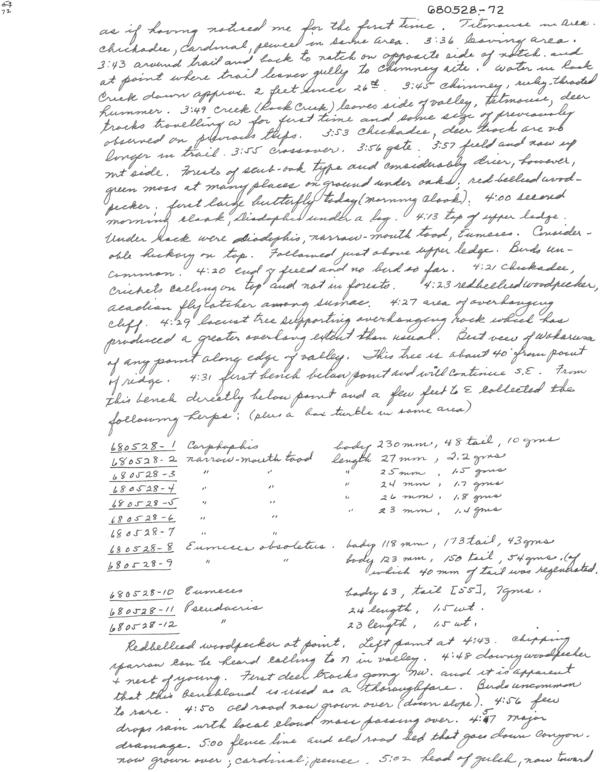 72
680528-72
as if having noticed me for the first time. Titmouse in area.
chickadee, cardinal, peewee in same area. 3:36 leaving area.
3:43 around trail and back to notch on opposite side of notch. and
at point where trail leaves gulley to chimney site. Water in Rock
Creek down approx. 2 feet since 26th. 3:45 chimney, ruby-throated
hummer. 3:49 Creek (Rock Creek) leaves side of valley, titmouse, deer
tracks travelling W for first time and some sign of previously
observed on previous trips. 3:53 Chickadee, deer track are no
longer in trail. 3:55 crossover. 3:56 gate. 3:57 field and now up
mt side. Forests of scrub-oak type and considerably drier, however,
green moss at many places on ground under oaks; red-bellied wood-
pecker. first large butterfly today (morning cloak). 4:00 second
morning cloak, Diadophis under a log. 4:13 top of upper ledge.
Under rock were diadophis, narrow-mouth toad, Eumeces. Consider-
able hickory on top. Followed just above upper ledge. Birds un-
common. 4:20 end of field and no bird so far. 4:21 Chickadee,
crickets calling on top and not in forests. 4:23 redbellied woodpecker,
acadian flycatcher among sumac. 4:27 area of overhanging
cliff. 4:29 locust tree supporting overhanging rock which has
produced a greater overhang extent than usual. Best view of Wakarusa
of any point along edge of valley. This tree is about 40' from point
of ridge. 4:31 first bench below point and will continue S.E. From
this bench directly below point and a few feet to E collected the
following herps: (plus a box turtle in same area)
680528-1 Carphophis body 230 mm, 48 tail, 10 gms
680528-2 narrow-mouth toad length 27 mm, 2.2 gms
680528-3 " " " 25 mm, 1.5 gms
680528-4 " " " 24 mm, 1.7 gms
680528-5 " " " 26 mm, 1.8 gms
680528-6 " " " 23 mm, 1.4 gms
680528-7 " "
680528-8 Eumeces obsoletus. body 118 mm, 173 tail, 43 gms
680528-9 " " body 123 mm, 150 tail, 54 gms. (of
which 40 mm of tail was regenerated.
680528-10 Eumeces body 63, tail [55], 7 gms.
680528-11 Pseudacris 24 length, 1.5 wt.
680528-12 " 23 length, 1.5 wt.
Redbellied woodpecker at point. Left point at 4:43. Chipping
sparrow can be heard calling to N in valley. 4:48 downy woodpecker
+ nest of young. First deer tracks going NW. and it is apparent
that this benchland is used as a thoroughfare. Birds uncommon
to rare. 4:50 old road now grown over (down slope). 4:56 few
drops rain with local cloud mass passing over. 4:57 major
drainage. 5:00 fence line and old road bed that goes down canyon.
now grown over; cardinal; peewee. 5:02 head of gulch, now toward